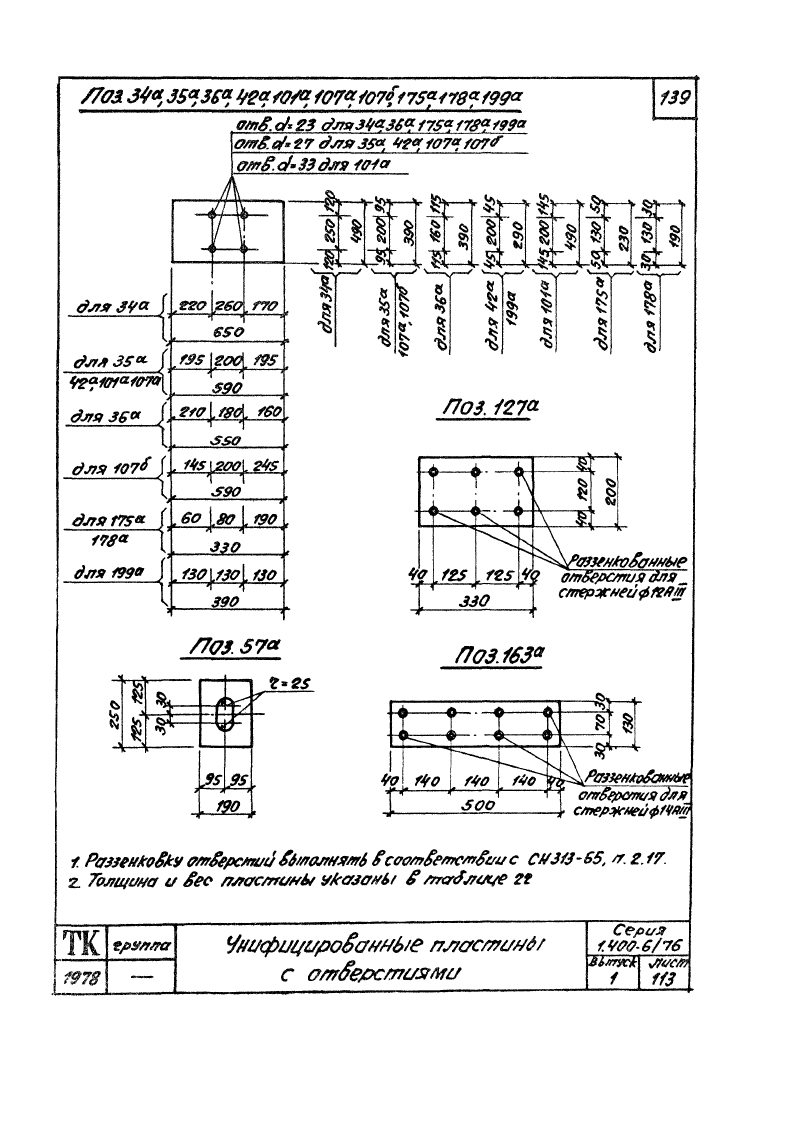 Поз. 34а, 35а, 36а, 42а, 101а, 107а, 107б, 175а, 178а, 199а
139
отв. d=23 для 34а, 36а, 175а, 178а, 199а
отв. d=27 для 35а, 42а, 107а, 107б
отв. d=33 для 101а
120 250 120
490
для 34а
95 200 95
390
для 35а
107а, 107б
115 160 115
390
для 36а
45 200 45
290
для 42а
199а
145 200 145
490
для 101а
50 130 50
230
для 175а
30 130 30
190
для 178а
для 34а
220 260 170
650
для 35а
42а, 101а, 107а
195 200 195
590
для 36а
210 180 160
550
для 107б
145 200 245
590
для 175а
178а
60 80 190
330
для 199а
130 130 130
390
Поз. 127а
40 120 40
200
40 125 125 40
330
Раззенкованные
отверстия для
стержней ф12АIII
Поз. 57а
r=25
250
125 125
30 30
95 95
190
Поз. 163а
30 70 30
130
40 140 140 140 40
500
Раззенкованные
отверстия для
стержней ф14АIII
1. Раззенковку отверстий выполнять в соответствии с СН313-65, п. 2.17.
2. Толщина и вес пластины указаны в таблице 22
ТК
группа
1978
—
Унифицированные пластины
с отверстиями
Серия
1.400-6/76
Выпуск
1
лист
113